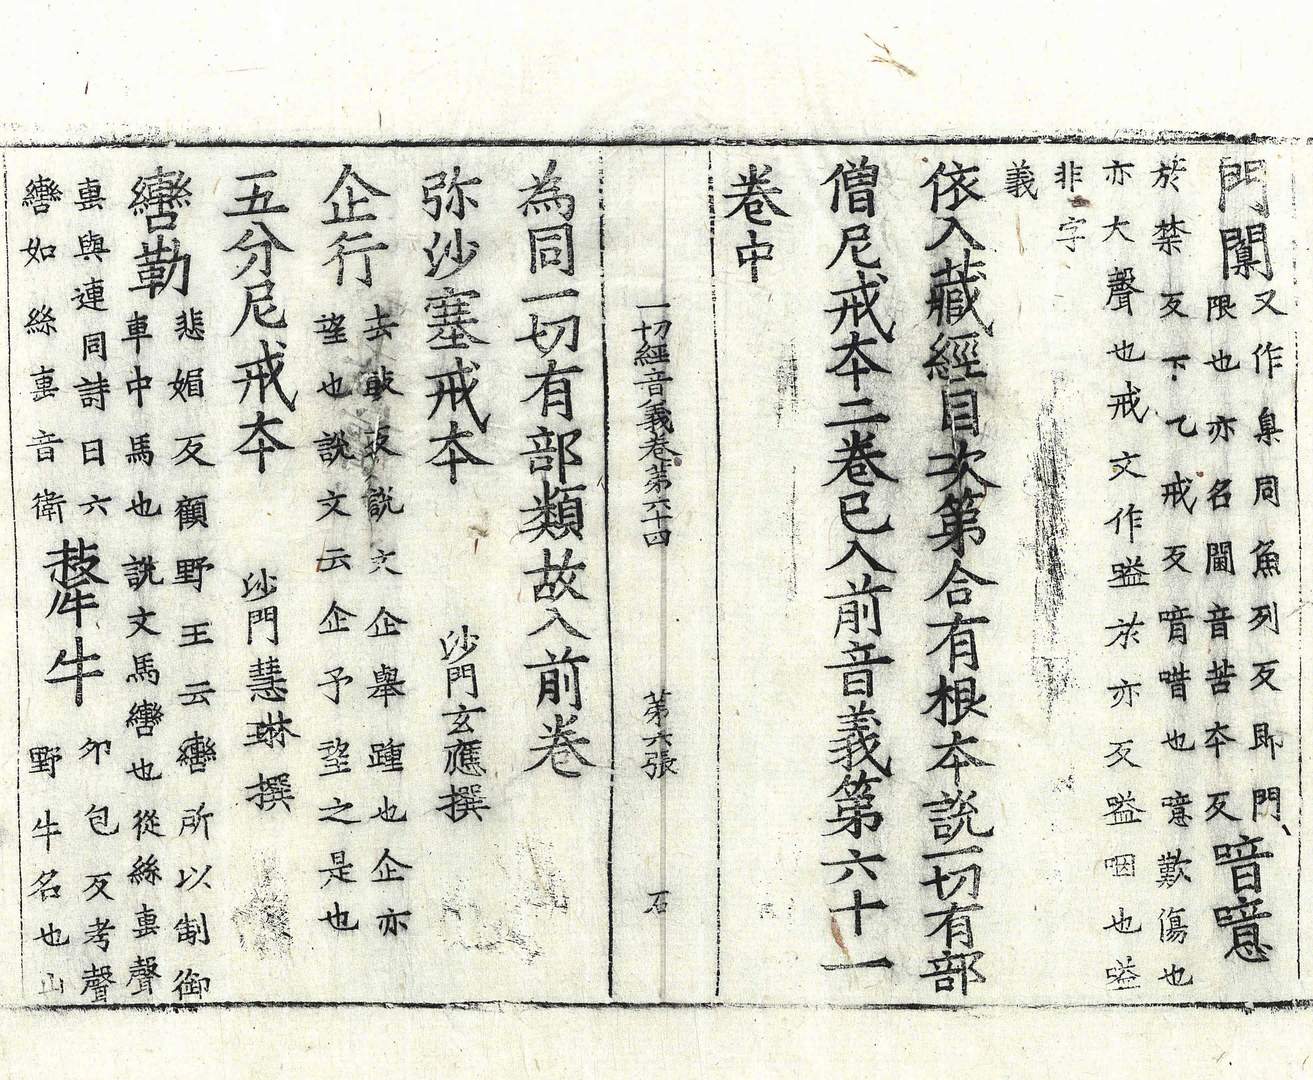 門闑又作臬同魚列反即門
限也亦名閫音苦本反喑噫
於禁反下乙戒反喑唶也噫歎傷也
亦大聲也戒文作嗌於亦反嗌咽也嗌
非字
義
依入藏經目次第合有根本說一切有部
僧尼戒本二卷已入前音義第六十一
卷中
一切經音義卷第六十四 第六張 石
為同一切有部類故入前卷
弥沙塞戒本 沙門玄應撰
企行去豉反說文企舉踵也企亦
望也說文云企予望之是也
五分尼戒本 沙門慧琳撰
轡勒悲媚反顧野王云轡所以制御
車中馬也說文馬轡也從絲軎聲
軎與連同詩曰六
轡如絲軎音衛犛牛卯包反考聲
野牛名也山